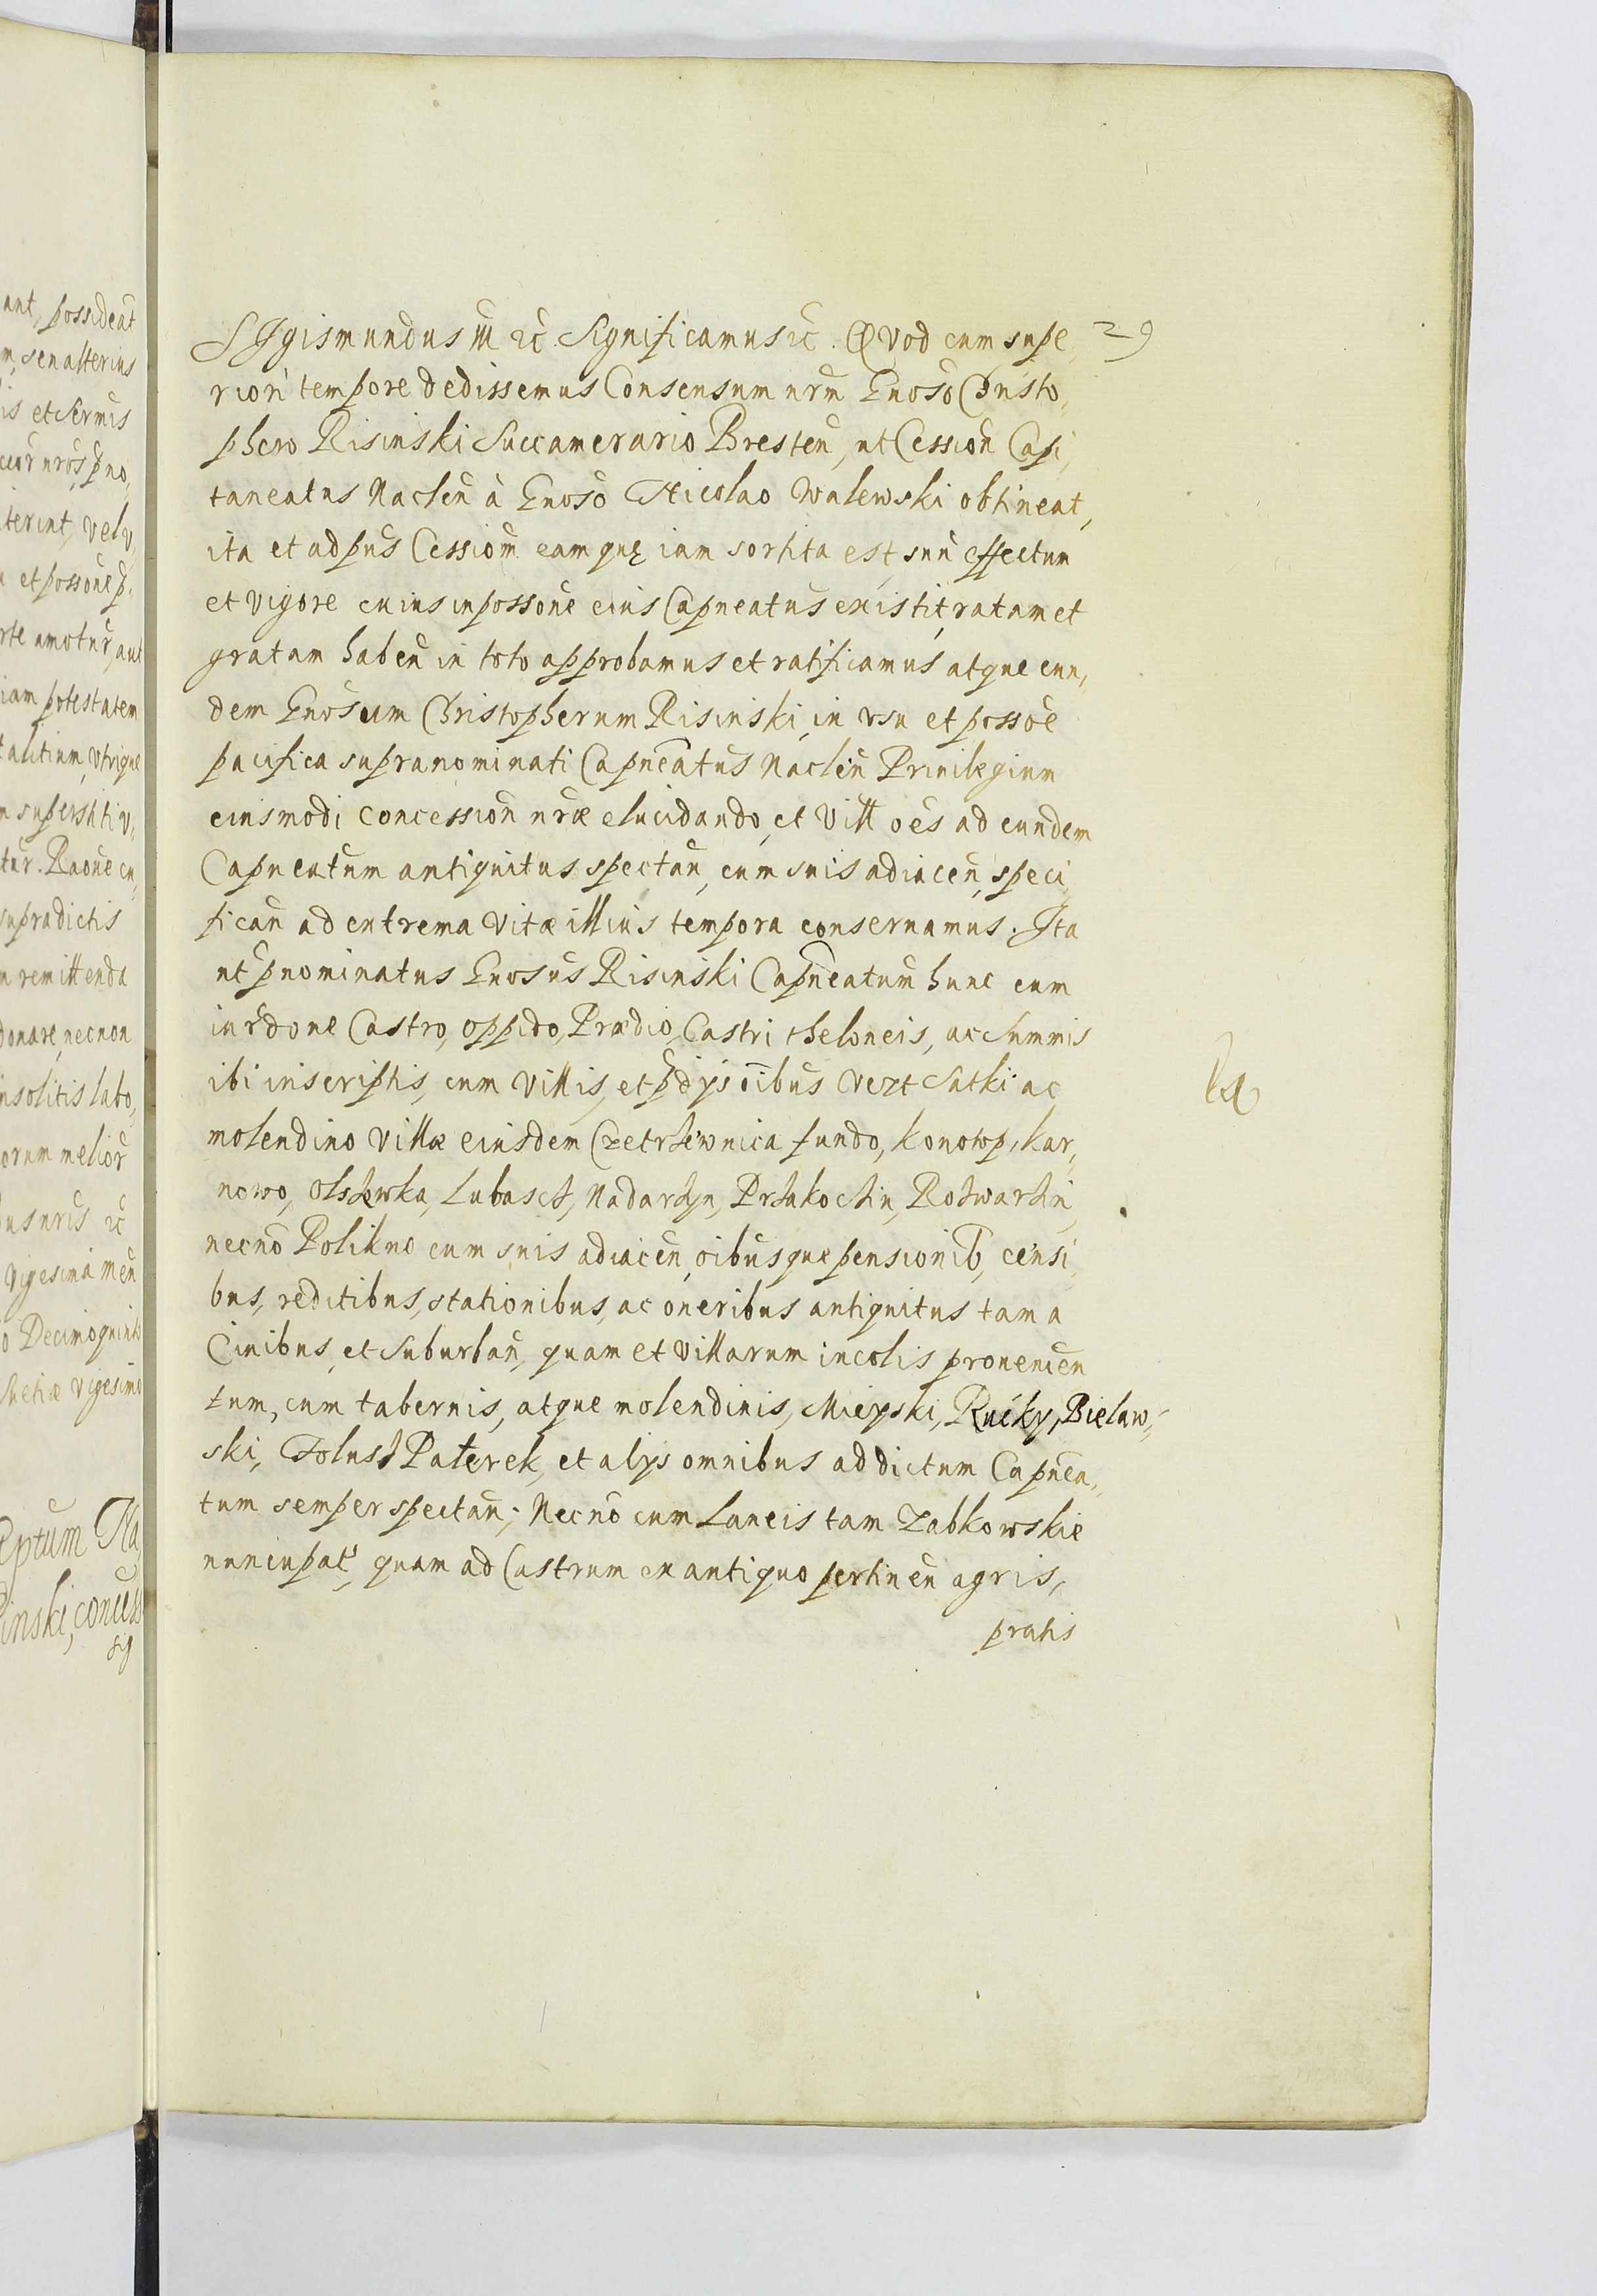 ant, possideāt
m, seu alterius
is et sermis
terint, vel v,
et possone p,
rte amotur, aut
iam potestatem
talitium, vtrique
m superstiti v,
tur. Raōne cu,
supradictis
n remittenda
donare, necnon
insolitis labo,
orum melior
usnris ꝛc
vigesima Men
o Decimoquinto
Suetiæ vigesimo
eptum Na,
inski, concess
sig
SIgismundus III ꝛc. Significamus ꝛc. QVod cum supe, 29
riori tempore dedissemus Consensum nrm̄ Gnoso Christo,
phero Risinski Succamerario Bresten̄, ut Cession̄ Capi,
taneatus Naclen̄ à Gnoso Nicolao Walewski obtineat,
ita et ad pn̄s Cessiom̄ eam quę iam sortita est, suū effectum
et vigore cuius in possone eius Capneatus existit, ratam et
gratam haben̄ in toto approbamus et ratificamus atque eun,
dem Gnosum Christopherum Risinski, in vsu et possoē
pacifica supranominati Capneatus Naclen̄ Priuilegium
eiusmodi concession̄ nræ elucidando, et Vill oēs ad eundem
Capneatum antiquitus spectan̄, cum suis adiacen̄, speci,
fican̄ ad extrema vitæ illius tempora conseruamus. Ita
ut p̄nominatus Gnosus Risinski Capneatum hunc cum
iurdone Castro, oppido, Prædio, Castri theloneis, ac summis
ibi inscriptis, cum Villis, et p̄dÿs oībus vezt Satki ac
molendino Villæ eiusdem Czetrżewnica fundo, Konotop, Kar,
nowo, Olszewka, Lubascz, Nadarżyn, Przakoczin, Rozwarzin,
necnō Polikno cum suis adiacen̄, oībusque pensionib, censi,
bus, reditibus, stationibus, ac oneribus antiquitus tam a
Ciuibus, et Suburban̄, quam et Villarum incolis prouenien
tum, cum tabernis, atque molendinis, Mieyski, Rucky, Bielaw,
ski, Tolusz Paterek, et alÿs omnibus ad dictum Capnea,
tum semper spectan̄; Necnō cum Laneis tam Zabkowskie
nuncupat, quam ad Castrum ex antiquo pertinen̄ agris,
pratis